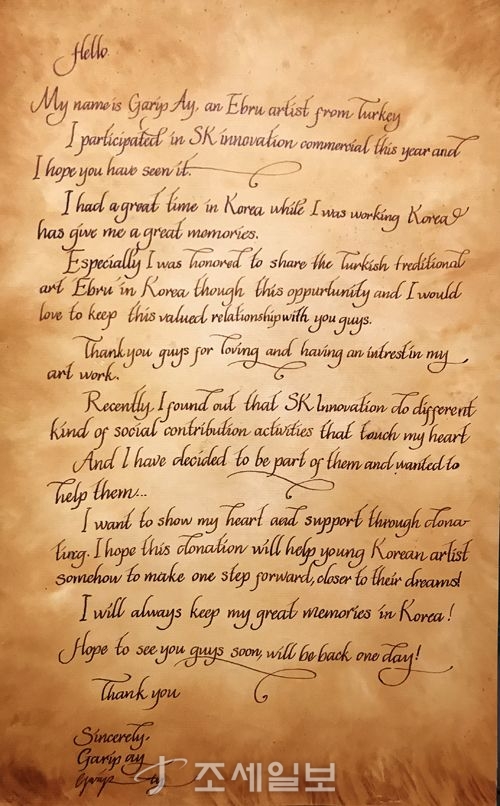 Hello.
My name is Garip Ay, an Ebru artist from Turkey
I participated in SK innovation commercial this year and
I hope you have seen it.
I had a great time in Korea while I was working Korea
has give me a great memories.
Especially I was honored to share the Turkish treditional
art Ebru in Korea though this oppurtunity and I would
love to keep this valued relationship with you guys.
Thank you guys for loving and having an intrest in my
art work.
Recently I found out that SK Innovation do different
kind of social contribution activities that touch my heart
And I have decided to be part of them and wanted to
help them...
I want to show my heart and support through dona-
ting. I hope this donation will help young Korean artist
somehow to make one step forward, closer to their dreams!
I will always keep my great memories in Korea!
Hope to see you guys soon, will be back one day!
Thank you
Sincerely.
Garip ay
조세일보